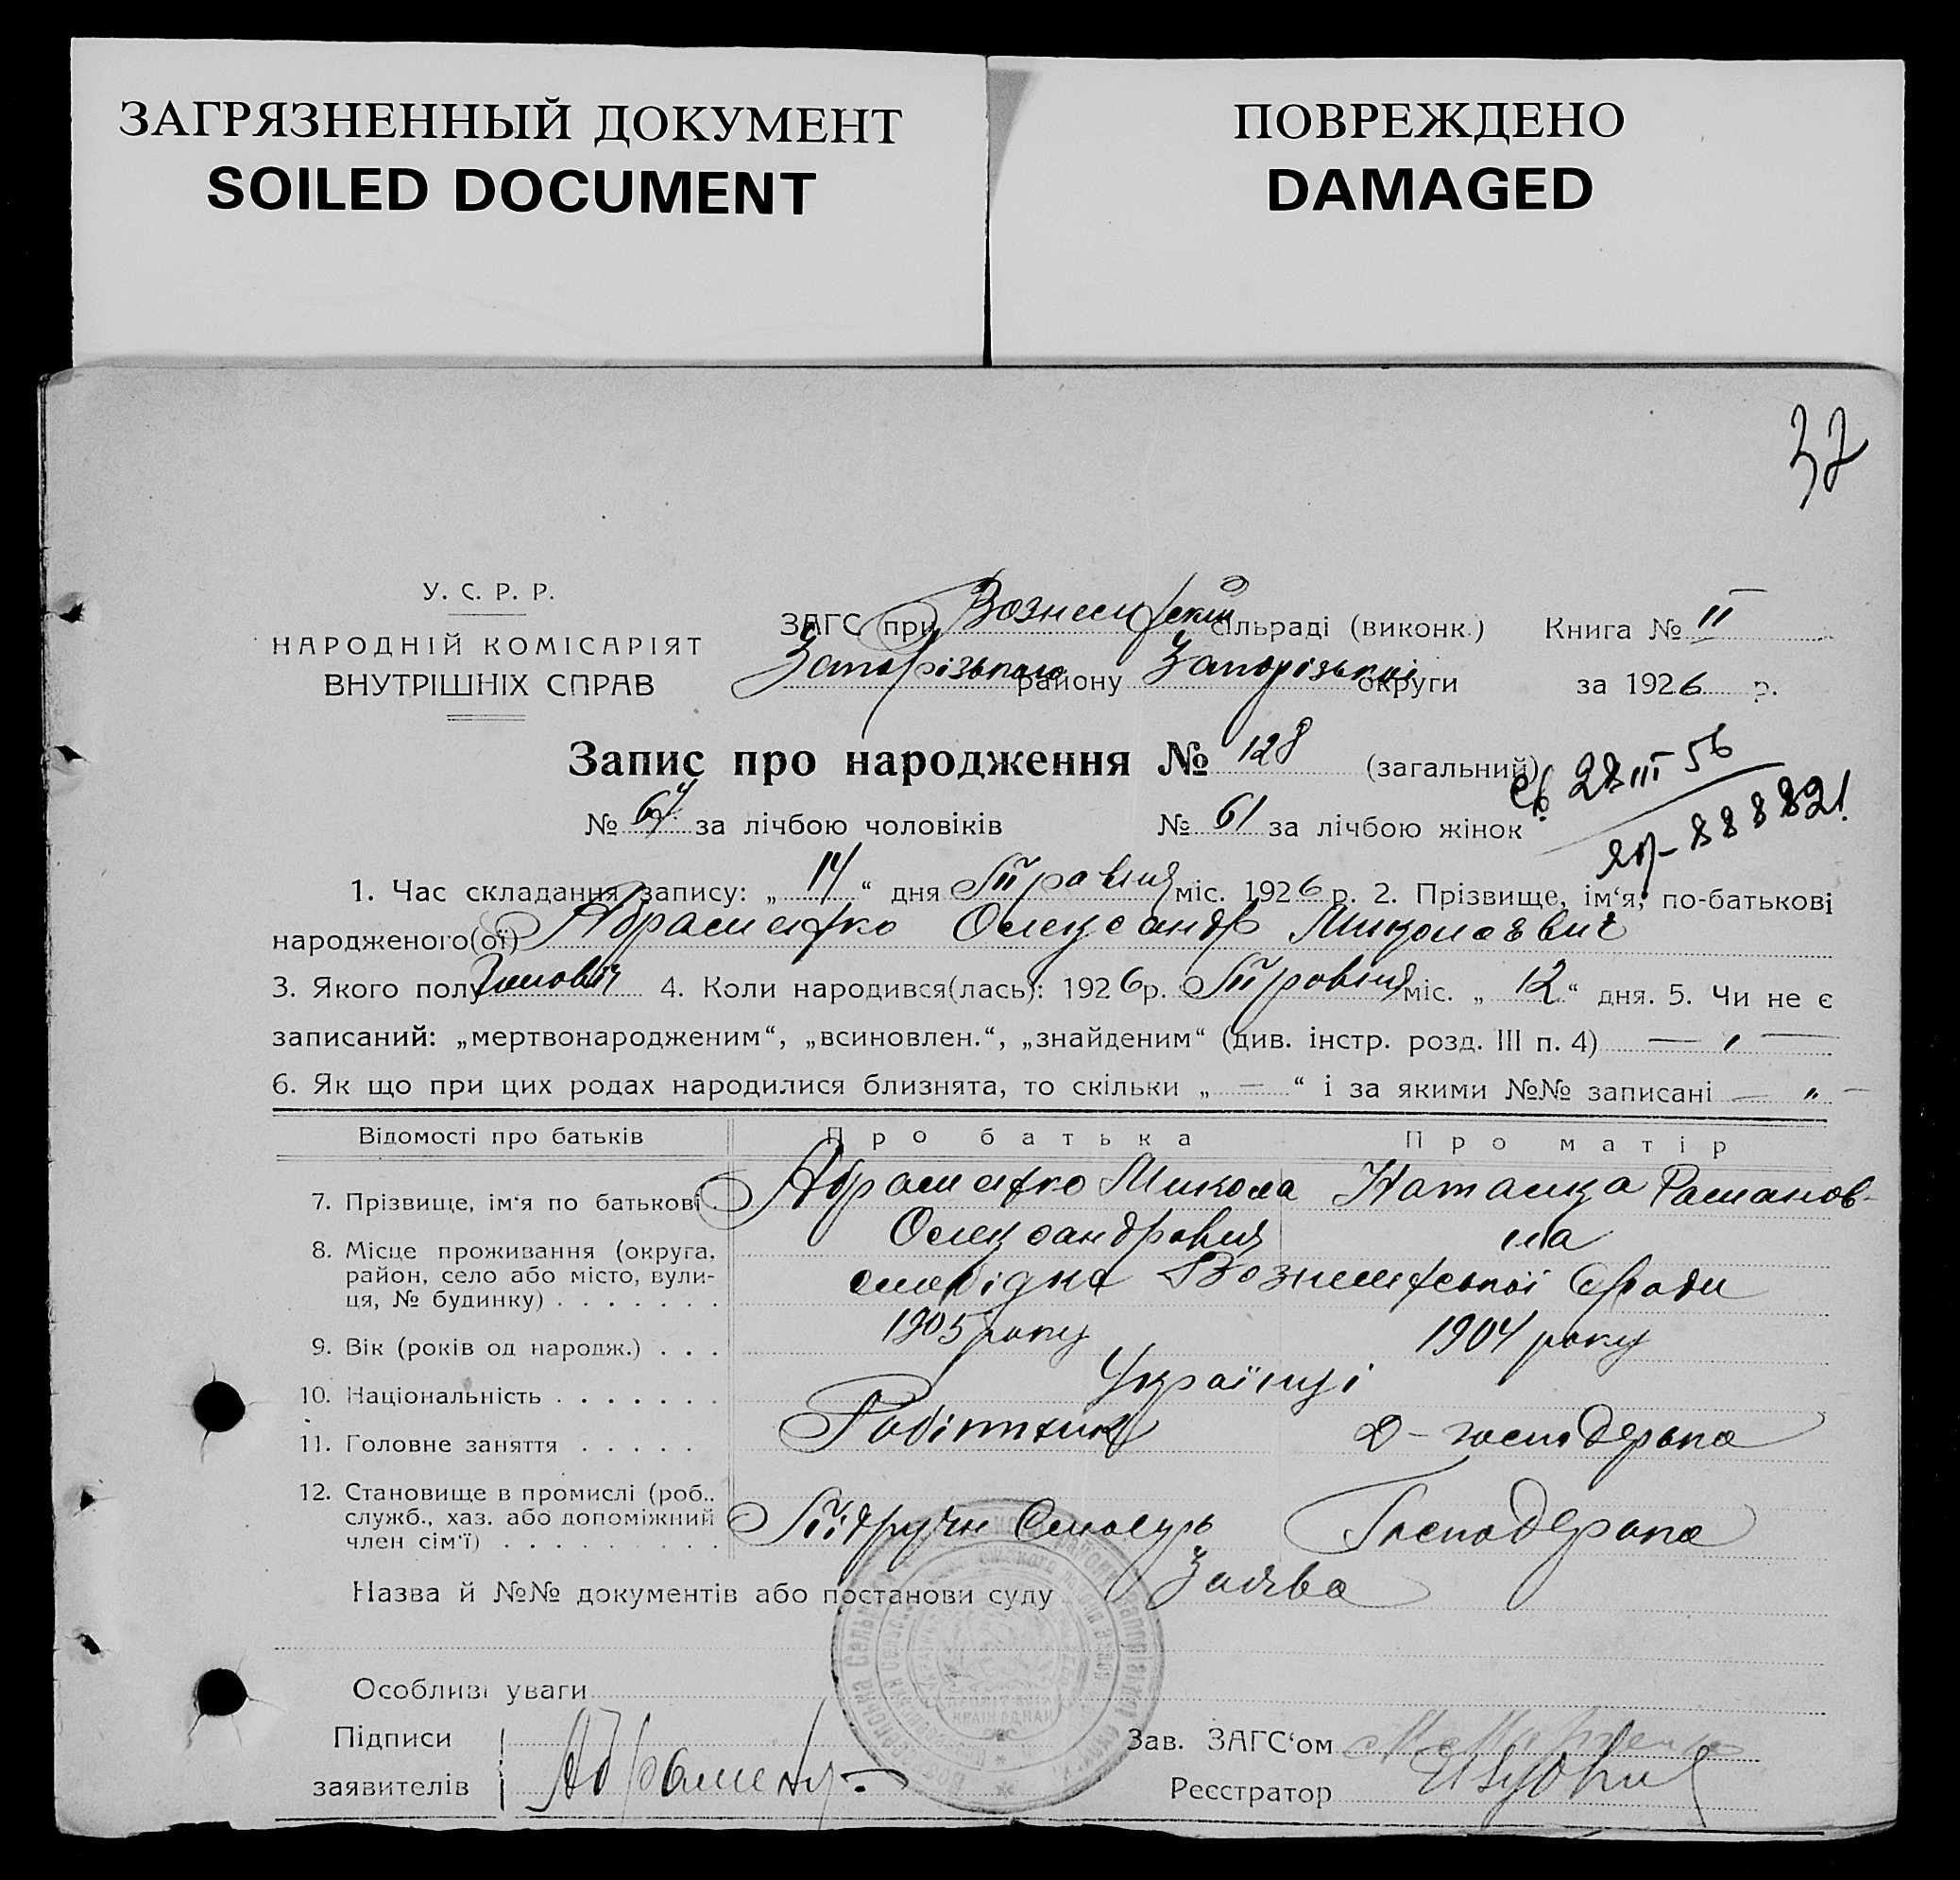 ЗАГРЯЗНЕННЫЙ ДОКУМЕНТ
SOILED DOCUMENT
ПОВРЕЖДЕНО
DAMAGED
37
У. С. Р. Р.
НАРОДНІЙ КОМІСАРІЯТ
ВНУТРІШНІХ СПРАВ
ЗАГС при Вознесенській сільраді (виконк.) Книга № II
Запорізького району Запорізької округи за 1926 р.
Запис про народження № 128 (загальний)
28 III 56
№ 67 за лічбою чоловіків № 61 за лічбою жінок
1. Час складання запису: „ 14 “ дня Травня міс. 1926 р. 2. Прізвище, ім‘я, по-батькові
народженого(ої) Абраменко Олександр Миколаєвич
3. Якого полу Чоловіч 4. Коли народився(лась): 1926 р. Травня міс. „ 12 “ дня. 5. Чи не є
записаний: „мертвонародженим“, „всиновлен.“, „знайденим“ (див. інстр. розд. III п. 4) — „ —
6. Як що при цих родах народилися близнята, то скільки „ — “ і за якими №№ записані — „ —
Відомості про батьків Про батька Про матір
7. Прізвище, ім‘я по батькові Абраменко Микола Наталка Раманов-
Олександрович на
8. Місце проживання (округа,
район, село або місто, вули-
ця, № будинку) . . . . . . . слобідка Вознесенської с/ради
9. Вік (років од народж.) . . . 1905 року 1904 року
10. Національність . . . . . . . Українці
11. Головне заняття . . . . . Робітник Д-господарка
12. Становище в промислі (роб.,
служб., хаз. або допоміжний
член сім‘ї) . . . . . . . . . Підручн Слюсарь Господарка
Назва й №№ документів або постанови суду Заява
Особливі уваги
Підписи
заявителів Абраменко
Зав. ЗАГС‘ом
Реєстратор